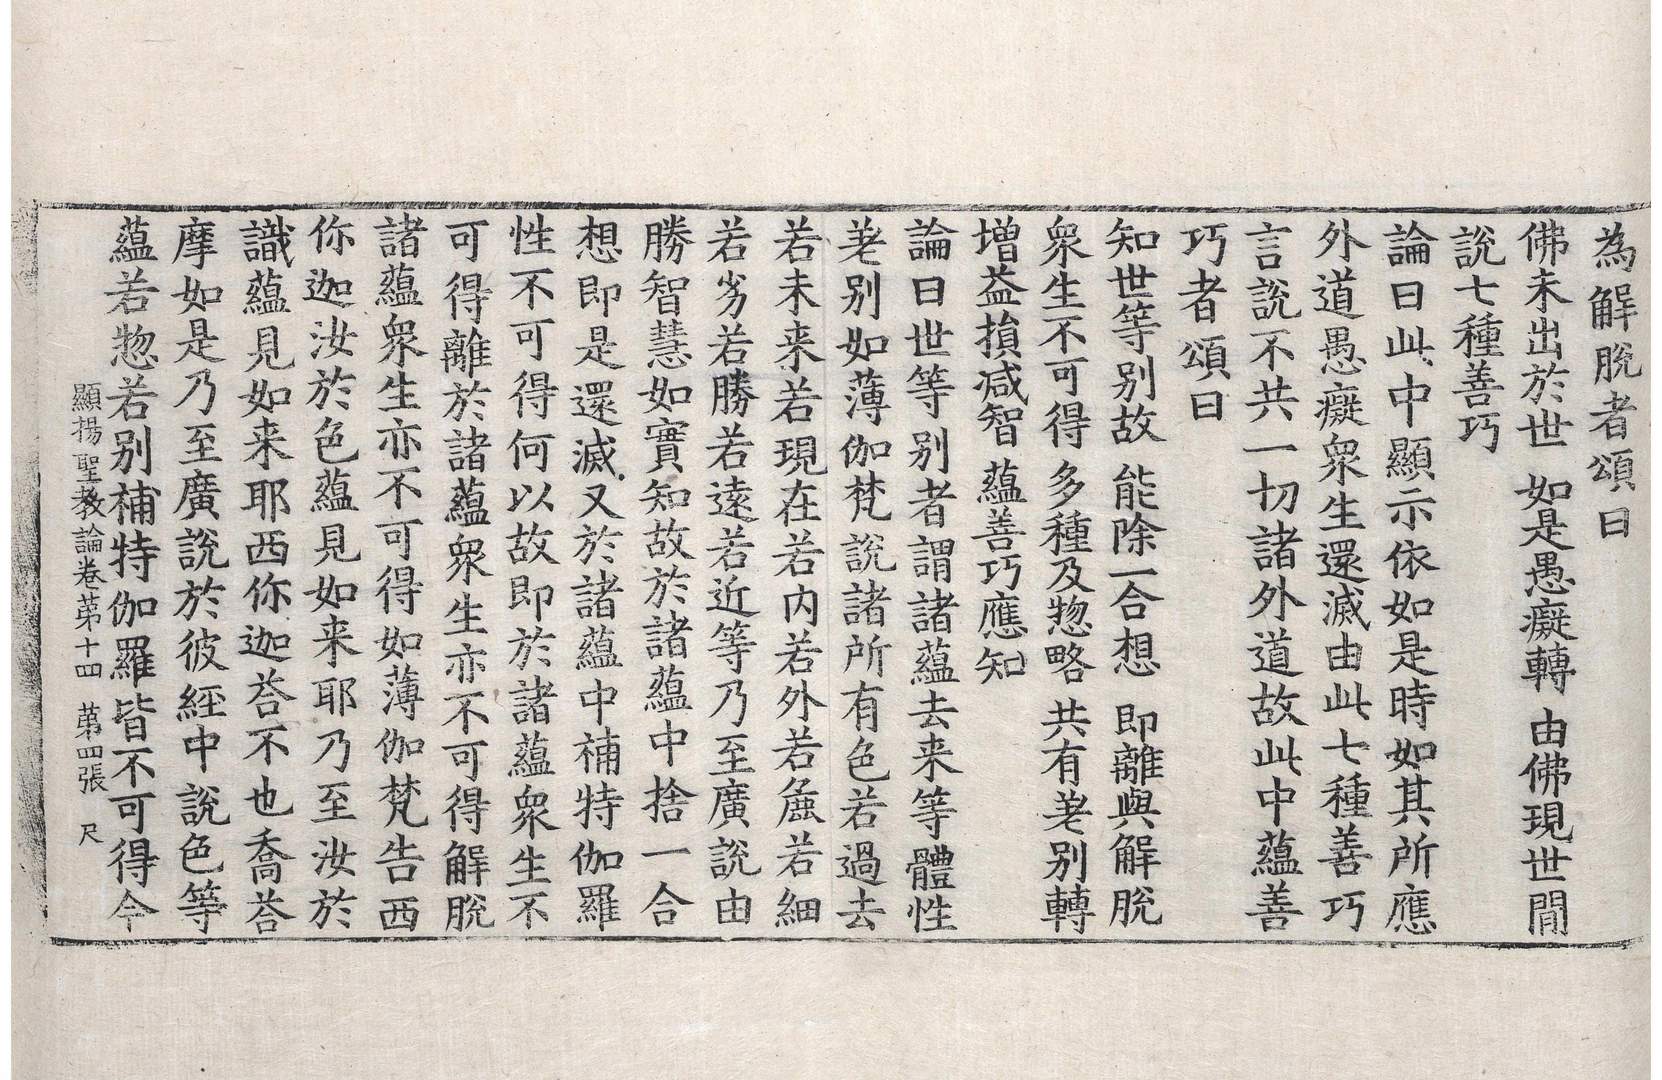 為解脫者頌曰
佛未出於世 如是愚癡轉 由佛現世間
說七種善巧
論曰此中顯示依如是時如其所應
外道愚癡眾生還滅由此七種善巧
言說不共一切諸外道故此中蘊善
巧者頌曰
知世等别故 能除一合想 即離與解脫
眾生不可得 多種及惣略 共有差别轉
增益損减智 蘊善巧應知
論曰世等别者謂諸蘊去来等體性
差别如薄伽梵說諸所有色若過去
若未来若現在若内若外若麁若細
若劣若勝若遠若近等乃至廣說由
勝智慧如實知故於諸蘊中捨一合
想即是還滅又於諸蘊中補特伽羅
性不可得何以故即於諸蘊眾生不
可得離於諸蘊眾生亦不可得解脫
諸蘊眾生亦不可得如薄伽梵告西
你迦汝於色蘊見如来耶乃至汝於
識蘊見如来耶西你迦荅不也喬荅
摩如是乃至廣說於彼經中說色等
蘊若惣若别補特伽羅皆不可得今
顯揚聖教論卷第十四 第四張 尺